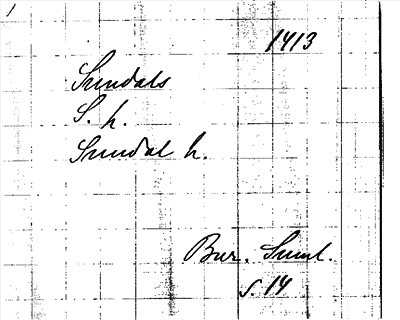 1413
Sundals
S. h.
Sundal h.
Bur. Suml.
s. 14